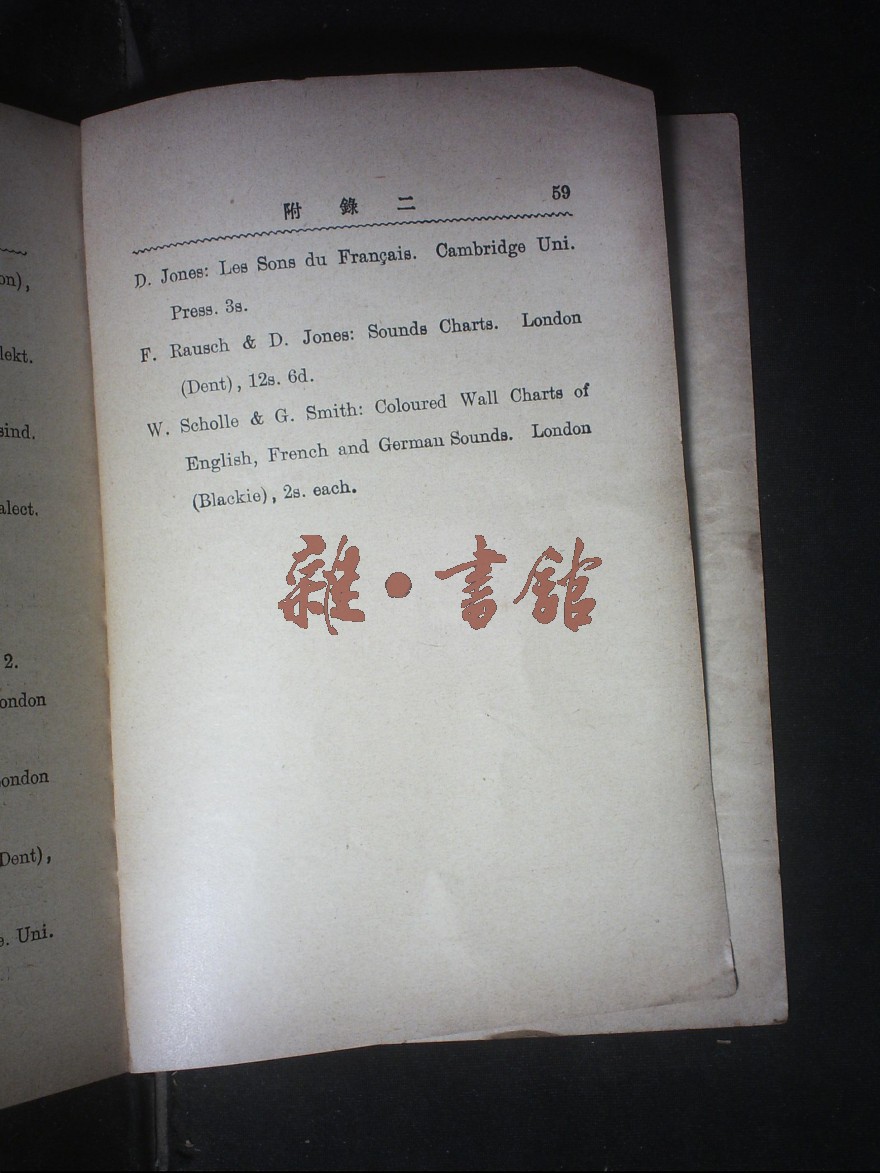 on),
lekt.
sind.
alect.
2.
ondon
ondon
Dent),
e. Uni.
附錄二 59
D. Jones: Les Sons du Français. Cambridge Uni.
Press. 3s.
F. Rausch & D. Jones: Sounds Charts. London
(Dent), 12s. 6d.
W. Scholle & G. Smith: Coloured Wall Charts of
English, French and German Sounds. London
(Blackie), 2s. each.
雜•書館